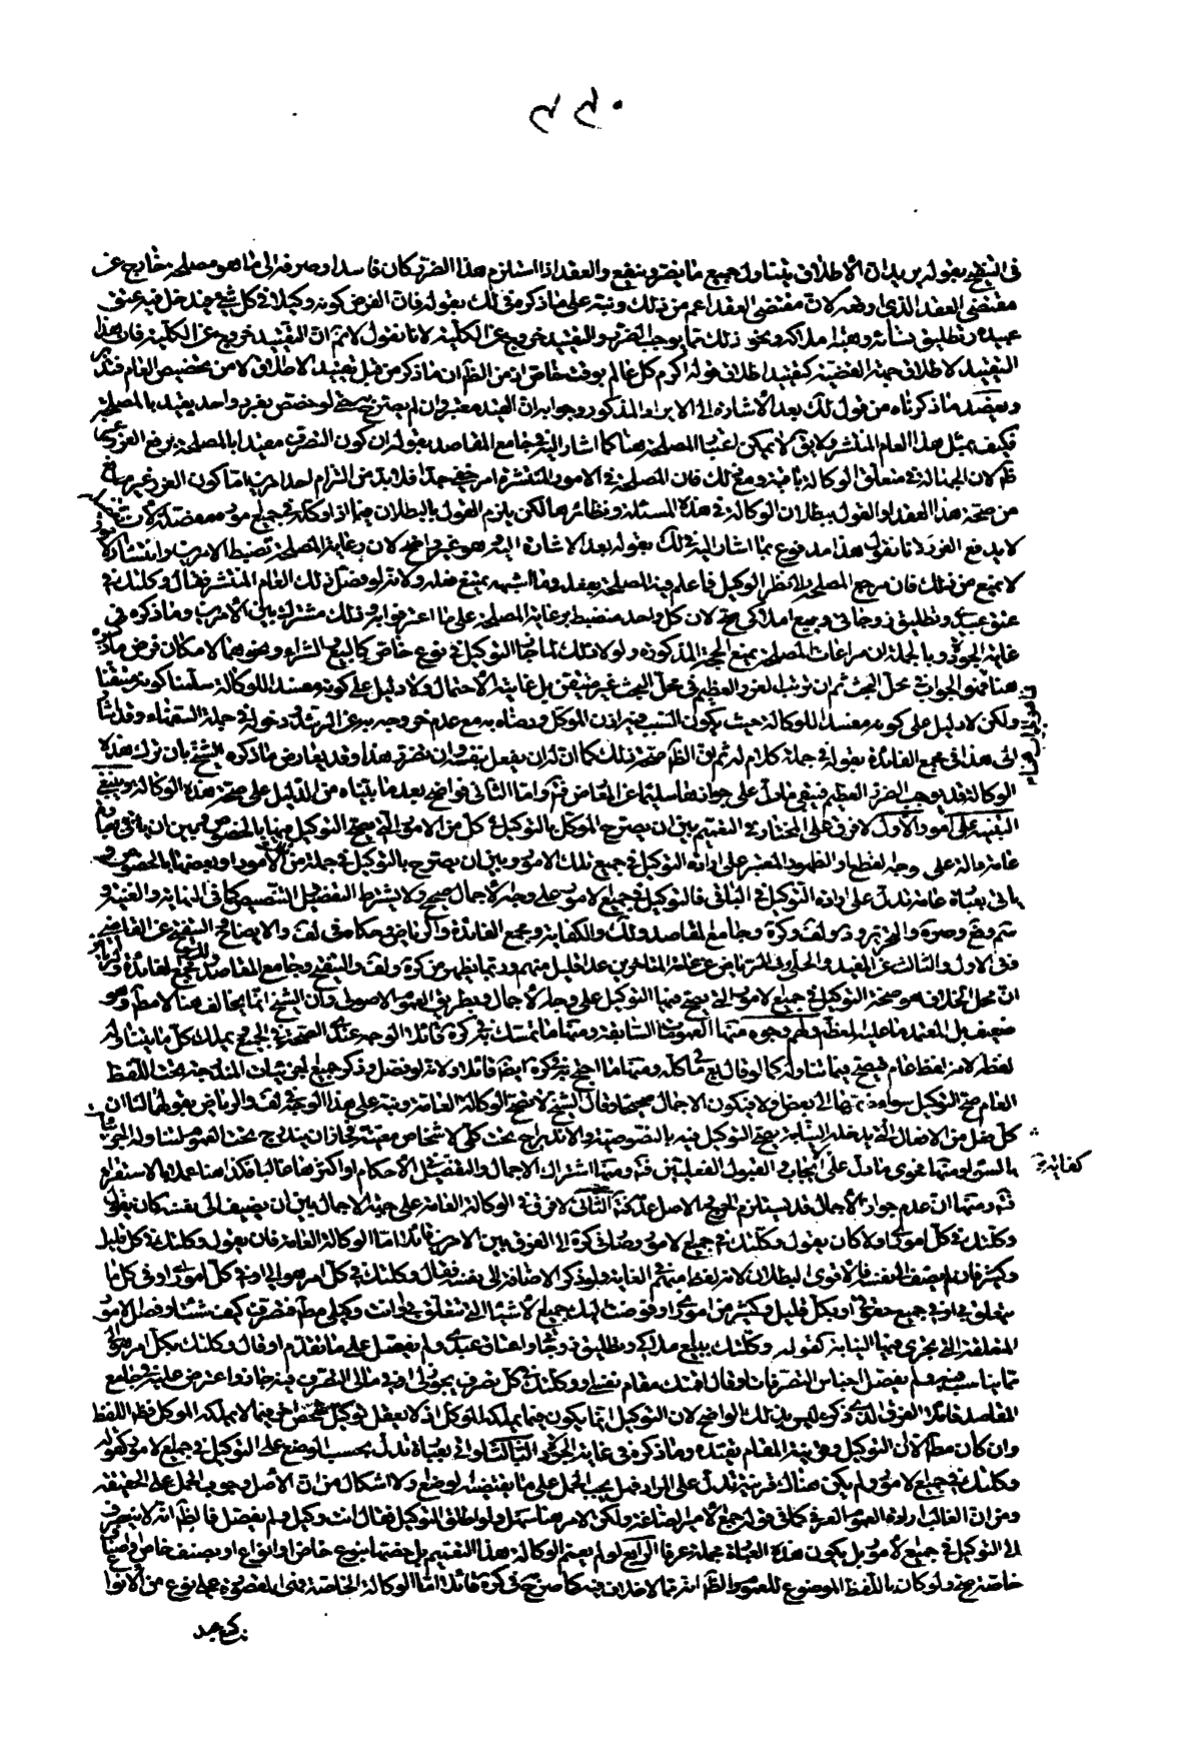 في التنقيح بقوله يريد ان الاطلاق يتناول جميع ما يضر و ينفع والعقد اذا استلزم هذا الضرر كان فاسدا وصرفه الى ما هو مصلحة خارج عن
مقتضى العقد الذي اوقعه لان مقتضى العقد اعم من ذلك ونبه على ما ذكر في لك بقوله فان الفرض كونه وكيلا في كل شيء فيدخل فيه عتق
عبيده وتطليق نسائه وهبة املاكه ونحو ذلك مما يوجب الضرر والتقييد خروج عن الكلية لانا نقول لا نم ان التقييد خروج عن الكلية فان هذا
التقييد لاطلاق حيث القضية كتقييد اطلاق قوله اكرم كل عالم بوقت خاص اذ من الظ ان ما ذكر من قبيل تقييد الاطلاق لا من تخصيص العام فتدبر
ويعضد ما ذكرناه من قول لك بعد الاشارة الى الايراد المذكور وجوابه ان القيد معتبر وان لم يصرح به حتى لو خصص بفرد واحد يقيد بالمصلحة
فكيف بمثل هذا العام المنتشر ولا يق لا يمكن اعتبار المصلحة هنا كما اشار اليه في جامع المقاصد بقوله ان كون التصرف مقيدا بالمصلحة يرفع الغرر
ظ لان الجهالة في متعلق الوكالة باقية ومع ذلك فان المصلحة في الامور المنتشرة امر خفي جدا فلا بد من التزام احد امرين اما كون الغرر غير مانع
من صحة هذا العقد او القول ببطلان الوكالة في هذه المسئلة ونظائرها لكن يلزم القول بالبطلان فيما اذا وكله في جميع اموره مفصلة لان
لا يدفع الغرر لانا نقول هذا مدفوع بما اشار اليه في لك بقوله بعد الاشارة اليه وهو غير واضح لان رعاية المصلحة تضبط الامرين وانتشاره
لا يمنع من ذلك فان مرجع المصلحة الى نظر الوكيل فما علم فيه المصلحة يفعله وما اشتبه يمتنع فعله ولانه لو فصل ذلك العام المنتشر فقال وكلتك في
عتق عبيدي وتطليق زوجاتي وبيع املاكي صح لان كل واحد منضبط برعاية المصلحة على ما اعترفوا به وذلك مشترك بين الامرين وما ذكره في
غاية الجودة وبالجملة ان مراعاة المصلحة يمنع الحجة المذكورة ولولا ذلك لما جاز التوكيل في نوع خاص كالبيع والشراء ونحوهما لامكان فرض ما ذكروه
هنا فما هو الجواب في محل البحث ثم ان ترتب الغرر العظيم في محل البحث غير متيقن بل غايته الاحتمال ولا دليل على كونه مفسدا للوكالة سلمنا كونه متيقنا
ولكن لا دليل على كونه مفسدا للوكالة حيث يكون السبب فيه اذن الموكل ورضاه به مع عدم خروجه به عن الرشد ودخوله في جملة السفهاء وقد اشار
الى هذا في مجمع الفائدة بقوله في جملة كلام له ثم يق الظ صحة ذلك كما ان له ان يفعل بنفسه وان تضرر هذا وقد يعارض ما ذكره الشيخ بان ترك هذه
الوكالة قد يوجب الضرر العظيم فيبقى ما دل على جوازها سليما عن المعارض فتم واما الثاني فواضح بعد ما بيناه من الدليل على صحة هذه الوكالة وينبغي
التنبيه على امور الاول لا فرق على المختار في التعميم بين ان يصرح الموكل بالتوكيل في كل من الامور التي يصح التوكيل فيها بالخصوص وبين ان ياتي بعبارة
عامة دالة على وجه القطع او الظهور المعتبر على ارادة التوكيل في جميع تلك الامور وبين ان يصرح بالتوكيل في جملة من الامور او بعضها بالخصوص و
ياتي بعبارة عامة تدل على ارادة التوكيل في الباقي فالتوكيل في جميع الامور على وجه الاجمال صحيح ولا يشترط التفصيل والتنصيص كما في النهاية والغنية و
ئر و فع وصرة والتحرير و د و لف وكرة وجامع المقاصد ولك والكفاية ومجمع الفائدة والرياض وحكاه في لف والايضاح والتنقيح عن القاضي
وفي الاول والثالث عن المفيد والحلي وفي الرياض عن عامة المتاخرين عدا قليل منهم وربما يظهر من كرة ولف والتنقيح وجامع المقاصد ومجمع الفائدة والرياض
ان محل الخلاف هو صحة التوكيل في جميع الامور التي يصح فيها التوكيل على وجه الاجمال وبطريق العموم الاصولي وان الشيخ انما يخالف هنا لا مط وهو
ضعيف بل المعتمد ما عليه المعظم ولهم وجوه منها العمومات السابقة ومنها ما تمسك به في كرة قائلا الوجه عندي الصحة في الجميع يملك كل ما يتناوله
لفظه لانه لفظ عام فيصح فيما تناوله كما لو قال بع مالي كله ومنها ما احتج به في كرة ايضا قائلا ولانه لو فصل وذكر جميع الجزئيات المندرجة تحت اللفظ
العام صح التوكيل سواء ضم بعضها الى بعض او لا فيكون الاجمال صحيحا وقال الشيخ لا تصح الوكالة العامة ونبه على هذا الوجه في لف والرياض بقولهما لنا ان
كل فعل من الافعال التي يدخله النيابة يصح التوكيل فيه بالنصوصية والاندراج تحت كلي لاشخاص معينة فجاز ان يندرج تحت العموم لتناوله الجزئيات
بالسوية ومنها فحوى ما دل على الايجاب والقبول الفعليين فتم ومنها اشتراك الاجمال والتفصيل في الاحكام او اكثرها غالبا فكذا هنا عملا بالاستقراء
فتم ومنها ان عدم جواز الاجمال قد يستلزم الحرج والاصل عدمه الثاني لا فرق في الوكالة العامة على جهة الاجمال بين ان يضيف الى نفسه كان يقول
وكلتك في كل اموري او لا كان يقول وكلتك في جميع الامور وصار في كرة الى الفرق بين الامرين قائلا اما الوكالة العامة فان يقول وكلتك في كل قليل
وكثير فان لم يضف الى نفسه فالاقوى البطلان لانه لفظ مبهم في الغاية ولو ذكر الاضافة الى نفسه فقال وكلتك في كل امر هو لي او في كل اموري او في كل ما
يتعلق بي او في جميع حقوقي او بكل قليل وكثير من اموري او فوضت اليك جميع الاشياء التي تتعلق بي او انت وكيلي مط فتصرف كيف شئت او فصل الامور
المتعلقة التي يجري فيها النيابة كقوله وكلتك ببيع املاكي وتطليق زوجاتي واعتاق عبيدي ولم يفصل على ما تقدم او قال وكلتك بكل امر هو لي
مما يناسب فيه ولم يفصل اجناس التصرفات او قال اقمتك مقام نفسي او وكلتك في كل تصرف يجوز لي او في مالي التصرف فيه جاز واعترض عليه في جامع
المقاصد قائلا الفرق الذي ذكره ليس بذلك الواضح لان التوكيل انما يكون فيما يملكه الموكل اذ لا يعقل توكيل شخص اخر فيما لا يملكه الموكل فظ اللفظ
وان كان مطلقا لان التوكيل وقرينة المقام يقيده وما ذكره في غاية الجودة الثالث لو اتى بعبارة تدل بحسب الوضع على التوكيل في جميع الامور كقوله
وكلتك في جميع الامور ولم يكن هناك قرينة تدل على المراد فهل يجب الحمل على ما يقتضيه الوضع ولا اشكال من ان الاصل وجوب الحمل على الحقيقة
ومن ان الغالب ارادة العموم العرفي كما في قوله جمع الامير الصاغة ولكن الامر هنا سهل ولو اطلق التوكيل فقال انت وكيلي ولم يفصل فالظ انه لا ينصرف
الى التوكيل في جميع الامور بل يكون هذه العبارة مجملة عرفا الرابع لو لم يعمم الوكالة هذا التعميم بل خصها بنوع خاص او انواع او بصنف خاص او اصناف
خاصة صح ولو كان باللفظ الموضوع للعموم والظ انه مما لا خلاف فيه كما صرح به في كرة قائلا اما الوكالة الخاصة فهي المقصورة على نوع من الانواع